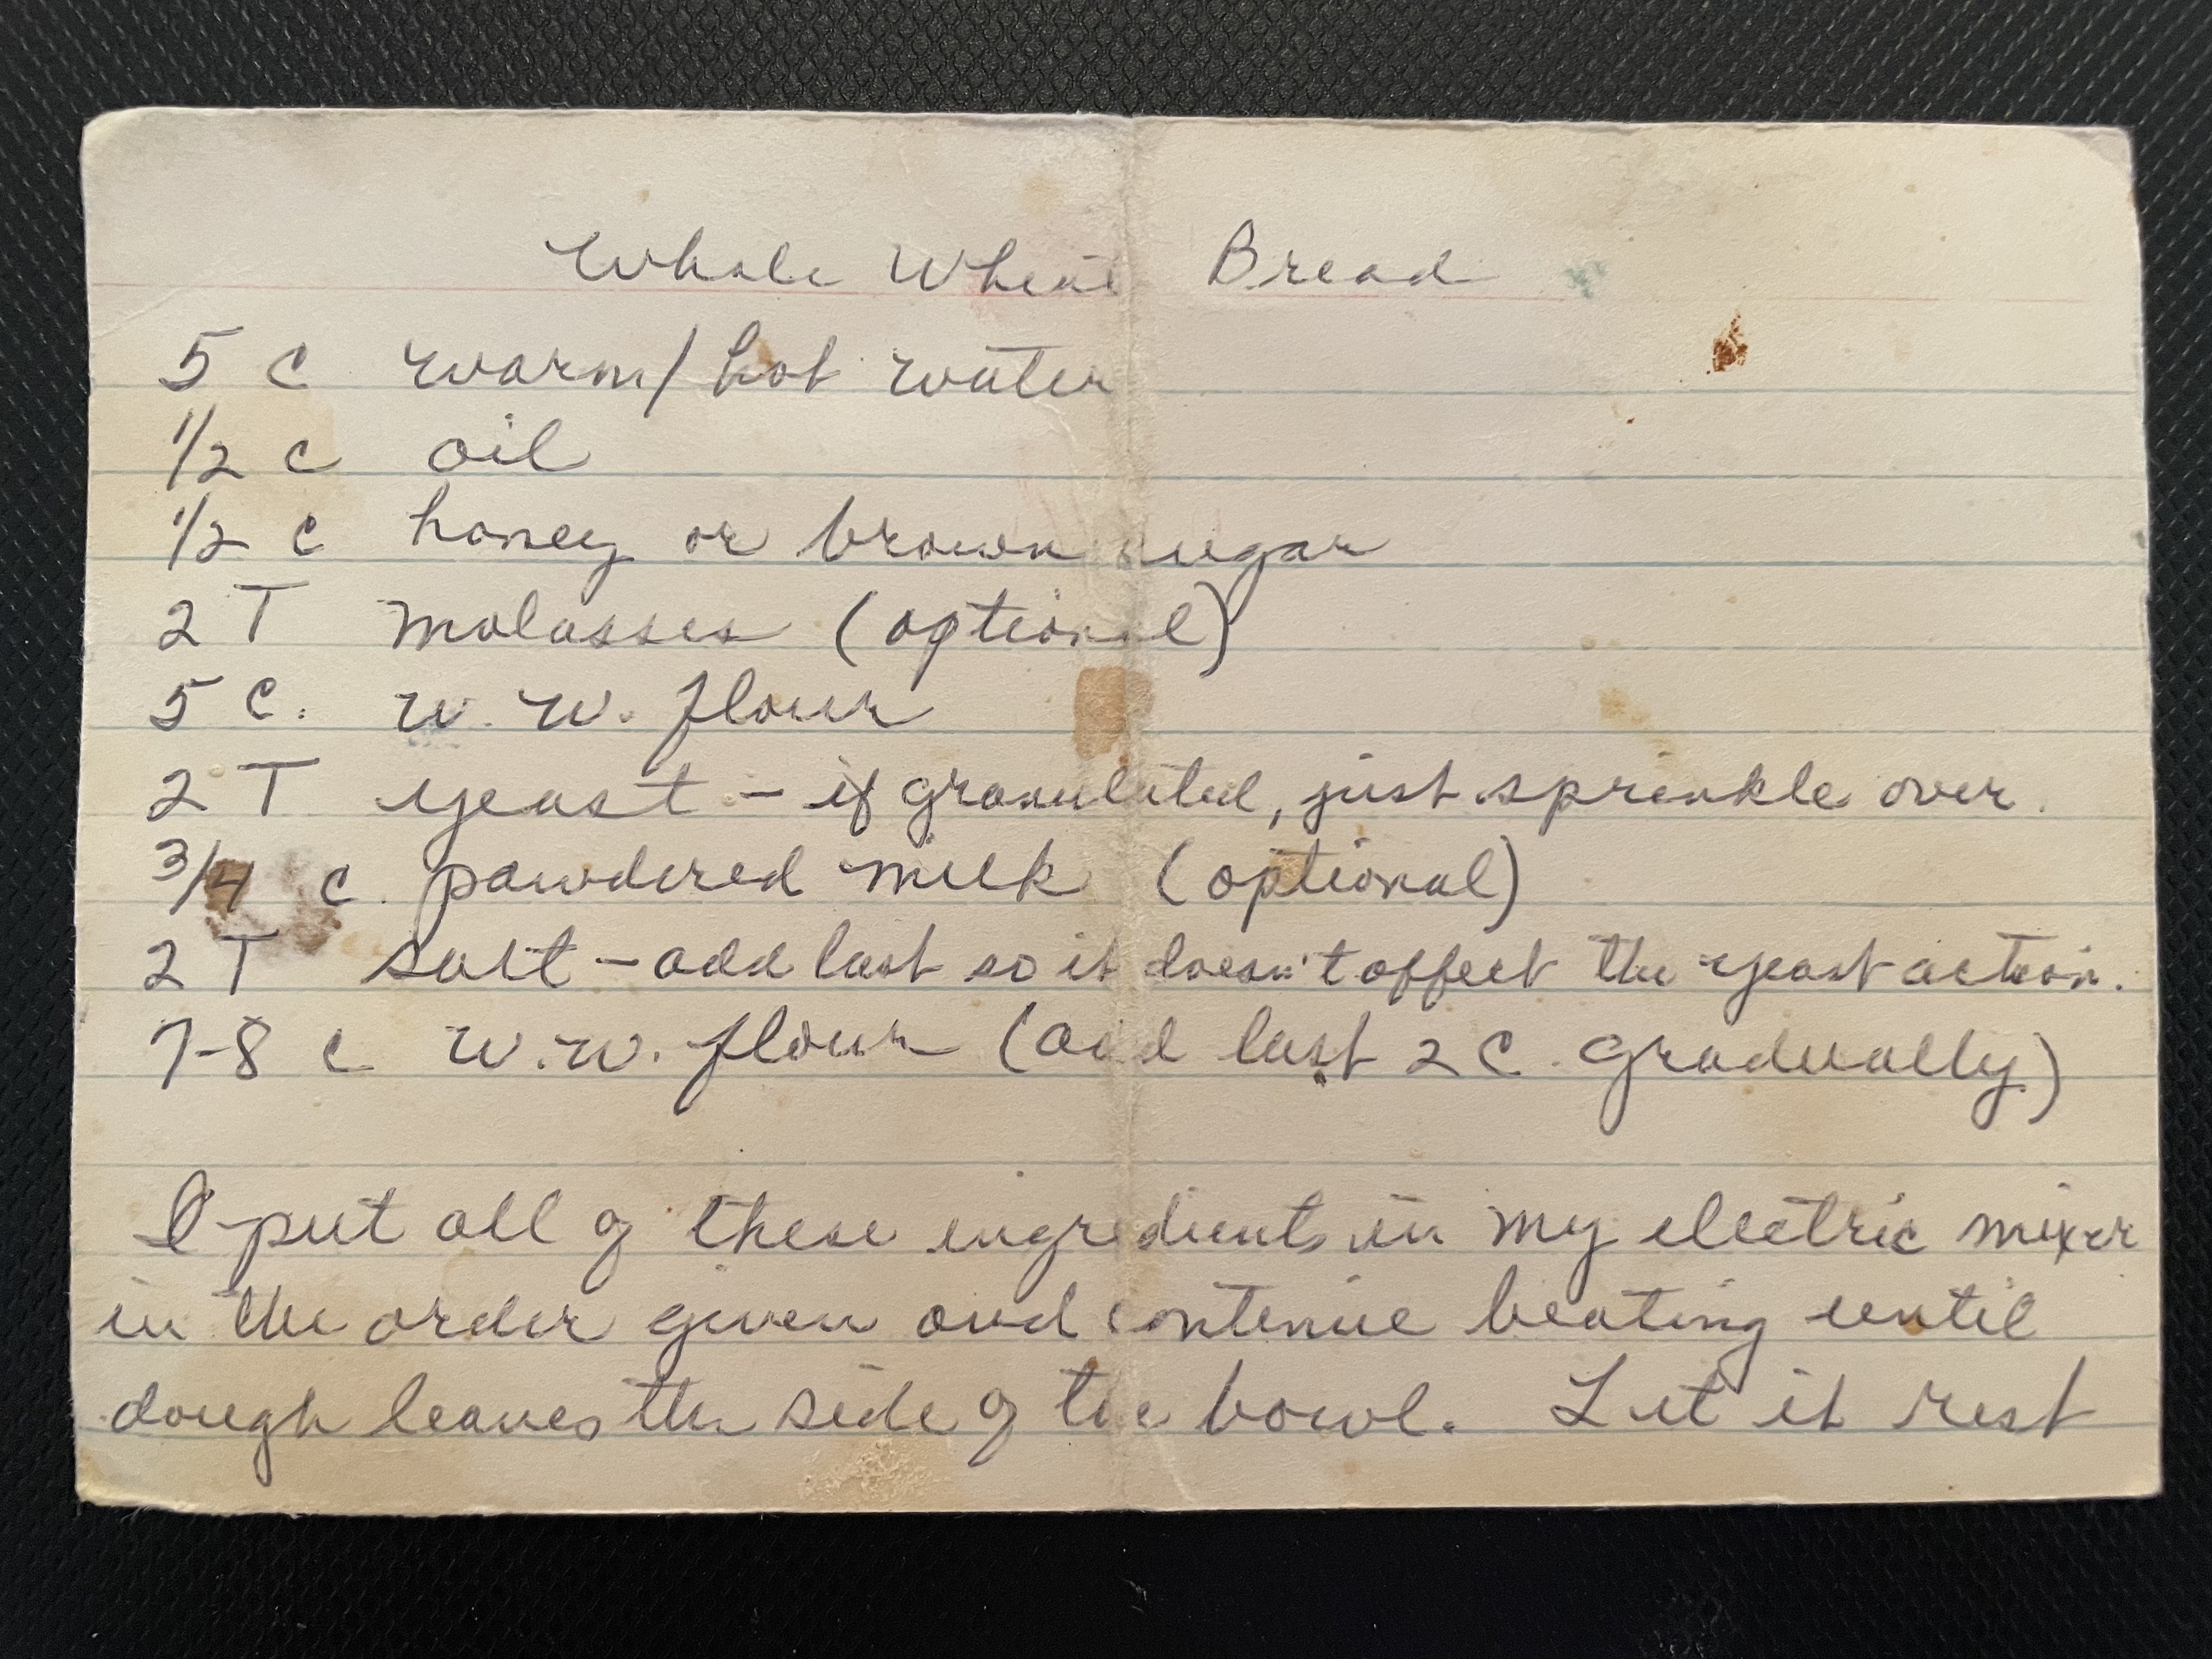 Whole Wheat Bread
5 c warm/hot water
1/2 c oil
1/2 c honey or brown sugar
2 T molasses (optional)
5 c. w.w. flour
2 T yeast - if granulated, just sprinkle over.
3/4 c. powdered milk (optional)
2 T salt - add last so it doesn't affect the yeast action.
7-8 c w.w. flour (add last 2 C. gradually)
I put all of these ingredients in my electric mixer
in the order given and continue beating until
dough leaves the side of the bowl. Let it rest